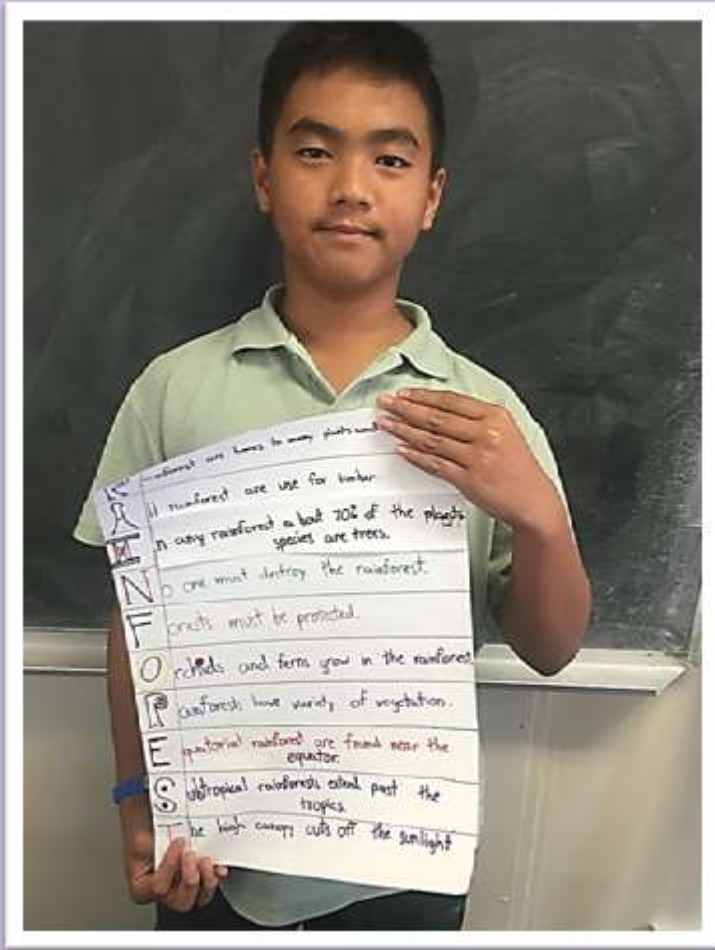 Rainforest are homes to many plants and
All rainforest are use for timber
In any rainforest about 70% of the plants
species are trees.
No one must destroy the rainforest.
Forests must be protected.
Orchids and ferns grow in the rainforest
Rainforests have variety of vegetation.
Equatorial rainforest are found near the
equator.
Subtropical rainforests extend past the
tropics
The high canopy cuts off the sunlight